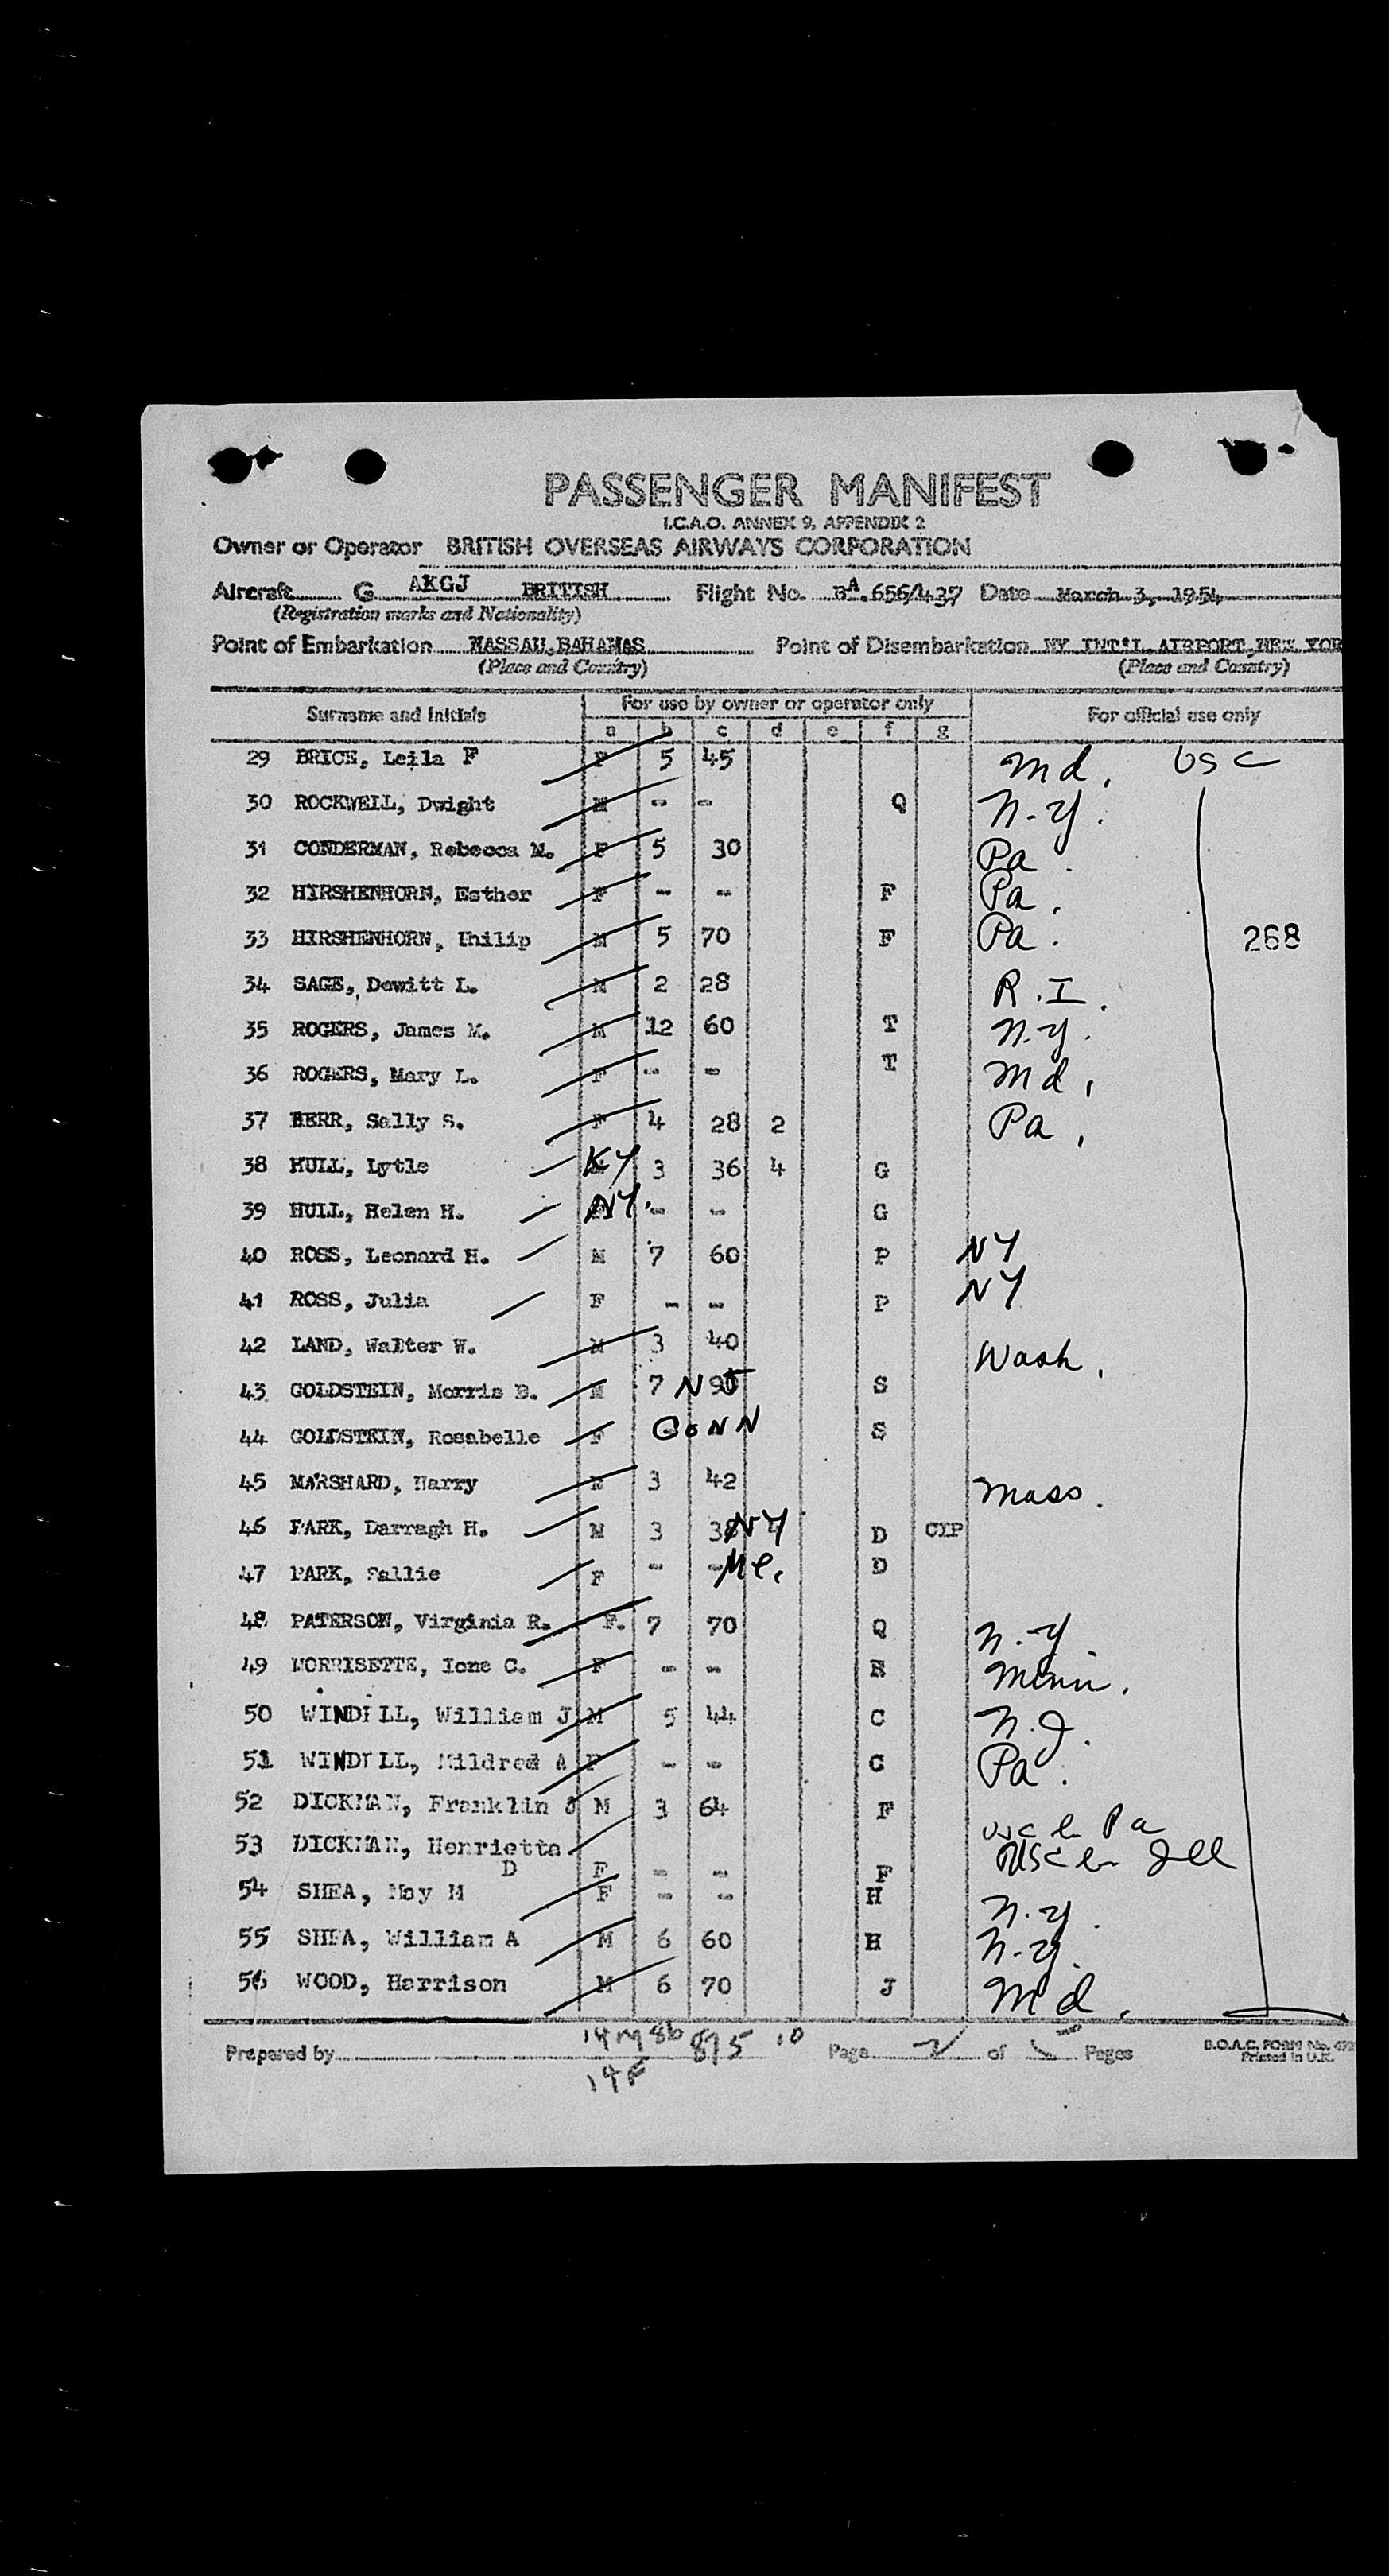 PASSENGER MANIFEST
I.C.A.O. ANNEX 9, APPENDIX 2
Owner or Operator BRITISH OVERSEAS AIRWAYS CORPORATION
Aircraft G AKGJ BRITISH Flight No. BA.656/437 Date March 3, 1954
(Registration marks and Nationality)
Point of Embarkation NASSAU,BAHAMAS Point of Disembarkation NY INT'L AIRPORT,NEW YOR
(Place and Country) (Place and Country)
Surname and Initials For use by owner or operator only For official use only
a b c d e f g
29 BRICE, Leila F F 5 45 Md. USC
30 ROCKWELL, Dwight M - - Q N.Y.
31 CONDERMAN, Rebecca M. F 5 30 Pa.
32 HIRSHENHORN, Esther F - - F Pa.
33 HIRSHENHORN, Philip M 5 70 F Pa. 268
34 SAGE, Dewitt L. M 2 28 R.I.
35 ROGERS, James M. M 12 60 T N.Y.
36 ROGERS, Mary L. F - - T Md.
37 HERR, Sally S. F 4 28 2 Pa.
38 HULL, Lytle KY 3 36 4 G
39 HULL, Helen H. NY. - - G
40 ROSS, Leonard H. M 7 60 P NY
41 ROSS, Julia F - - P NY
42 LAND, Walter W. M 3 40 Wash.
43 GOLDSTEIN, Morris B. M 7 NJ S
44 GOLDSTEIN, Rosabelle F CONN S
45 MARSHARD, Harry M 3 42 Mass.
46 PARK, Darragh H. M 3 NY D CIP
47 PARK, Sallie F - - Me. D
48 PATERSON, Virginia R. F. 7 70 Q N.Y.
49 MORRISETTE, Ione C. F - - R Minn.
50 WINDELL, William J M 5 44 C N.J.
51 WINDELL, Mildred A F - - C Pa.
52 DICKMAN, Franklin J M 3 64 F USC Pa
53 DICKMAN, Henrietta USC Ill
D F - - F
54 SHEA, May M F - - H N.Y.
55 SHEA, William A M 6 60 H N.Y.
56 WOOD, Harrison M 6 70 J Md.
14M 86 895 10
Prepared by Page 2 of Pages B.O.A.C. FORM No.
14F Printed in U.K.